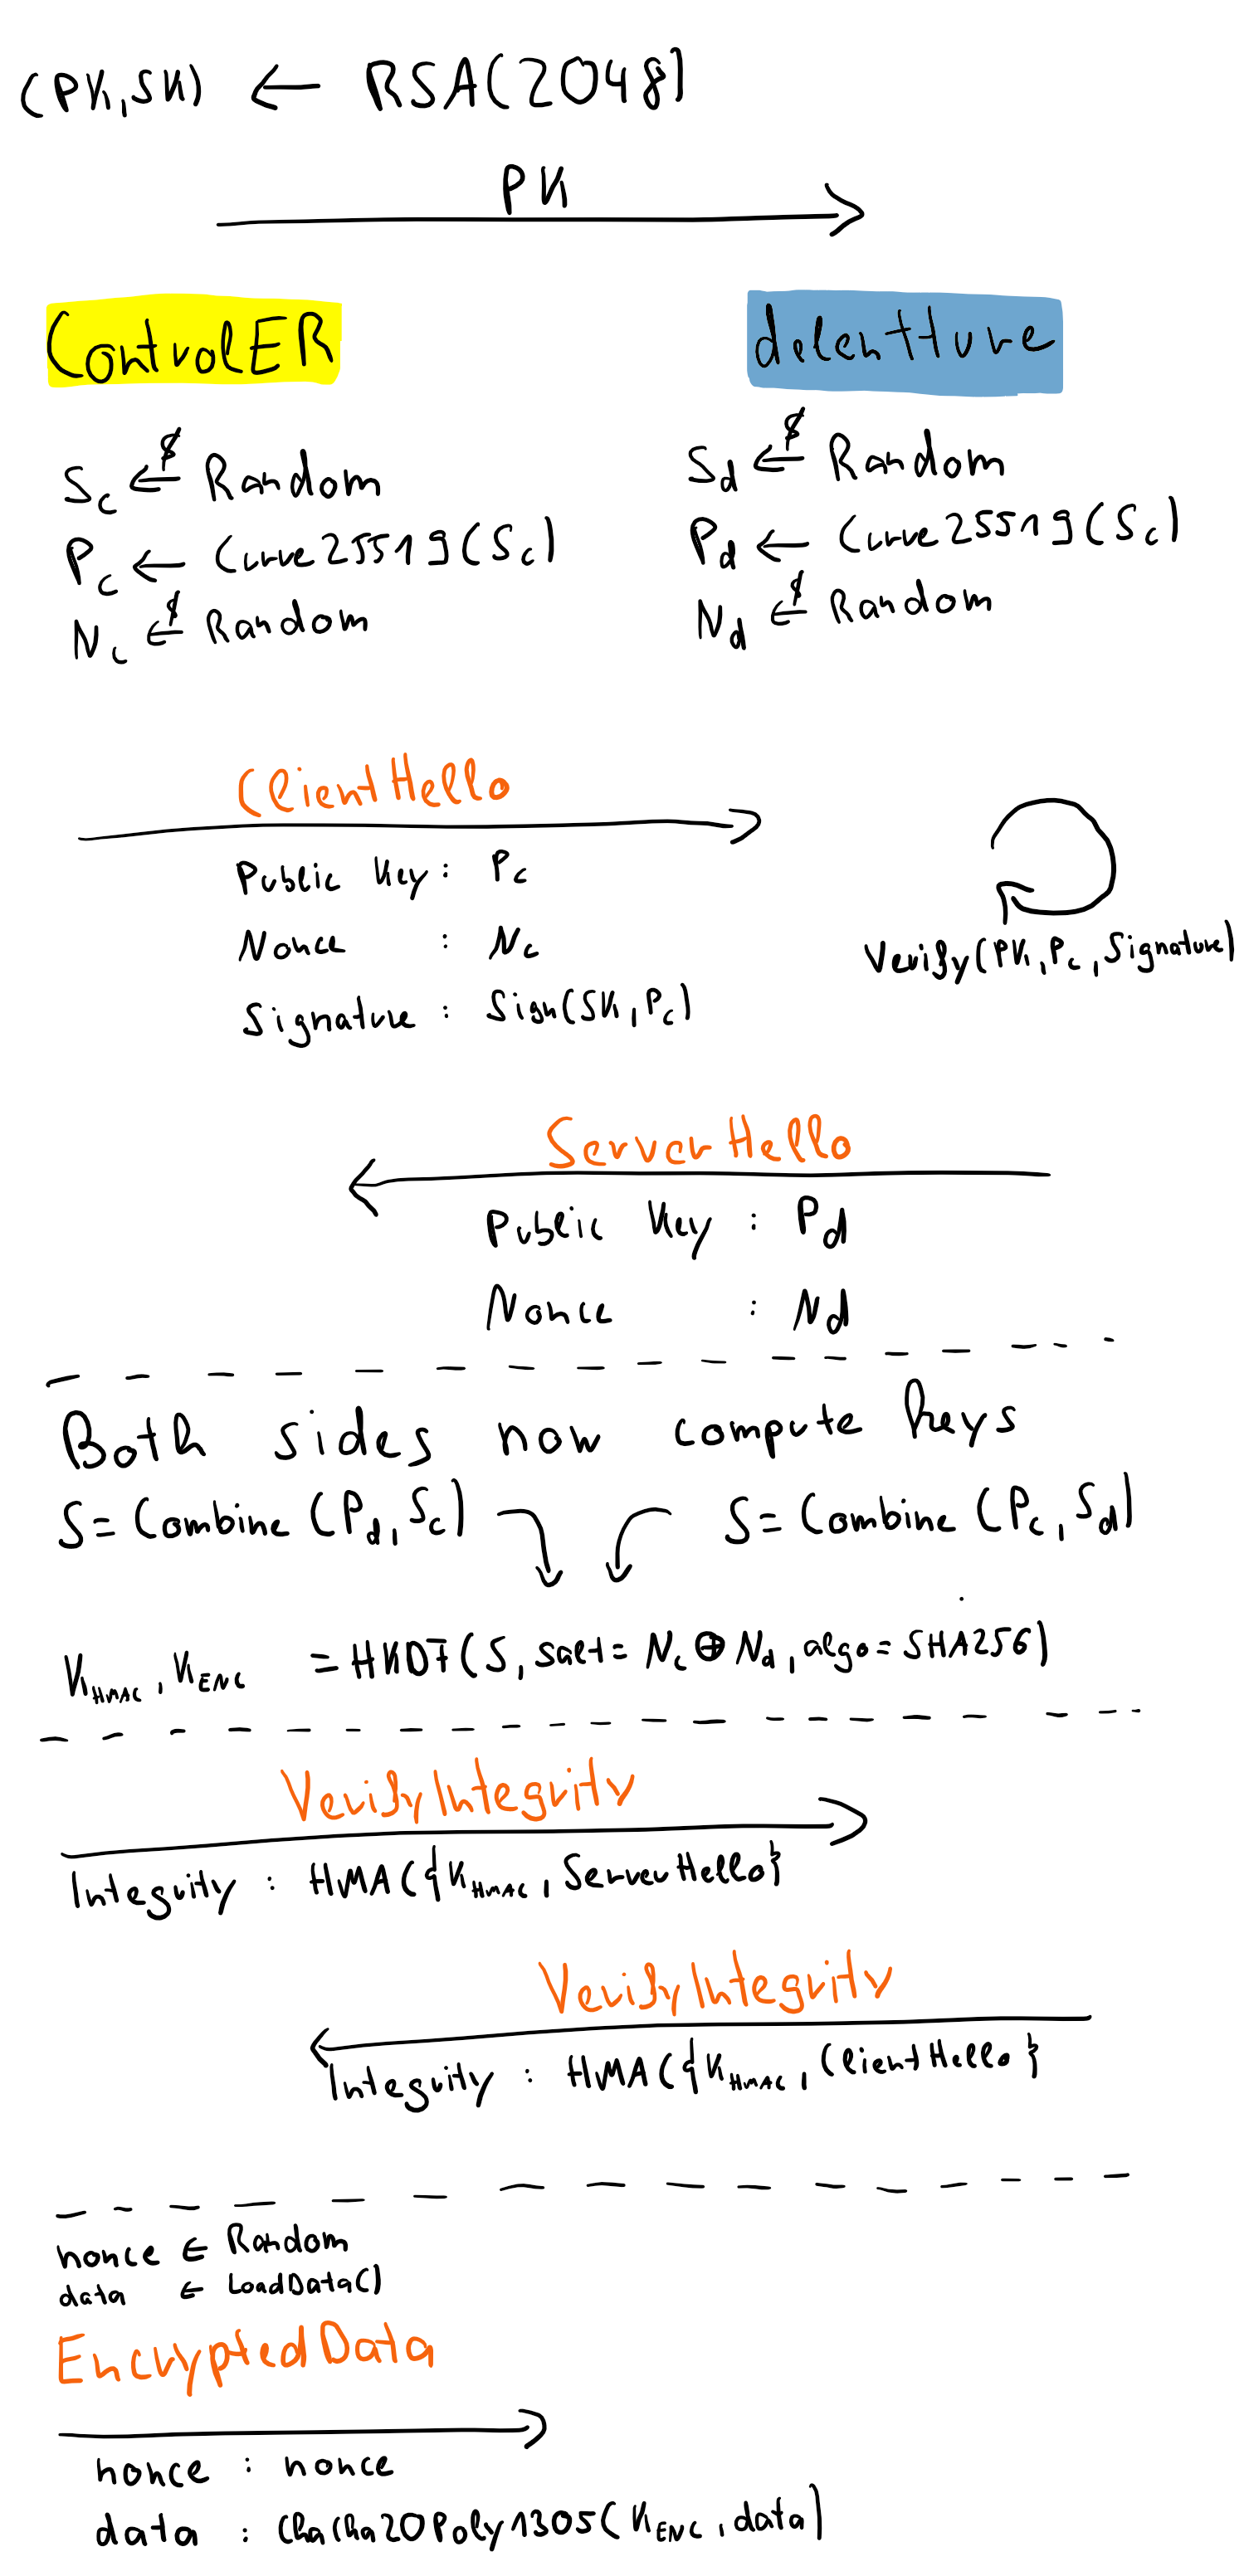 (PK,SK) ← RSA(2048)
PK
ControlER
delentture
S_c ←$ Random
P_c ← Curve25519(S_c)
N_c ←$ Random
S_d ←$ Random
P_d ← Curve25519(S_c)
N_d ←$ Random
ClientHello
Public Key : P_c
Nonce : N_c
Signature : Sign(SK,P_c)
Verify(PK,P_c,Signature)
ServerHello
Public Key : P_d
Nonce : N_d
Both sides now compute keys
S=Combine(P_d,S_c)
S=Combine(P_c,S_d)
K_HMAC,K_ENC =HKDF(S,salt=N_c⊕N_d,algo=SHA256)
VerifyIntegrity
Integrity : HMAC{K_HMAC,ServerHello}
VerifyIntegrity
Integrity : HMAC{K_HMAC,ClientHello}
nonce ← Random
data ← LoadData()
EncryptedData
nonce : nonce
data : ChaCha20Poly1305(K_ENC,data)